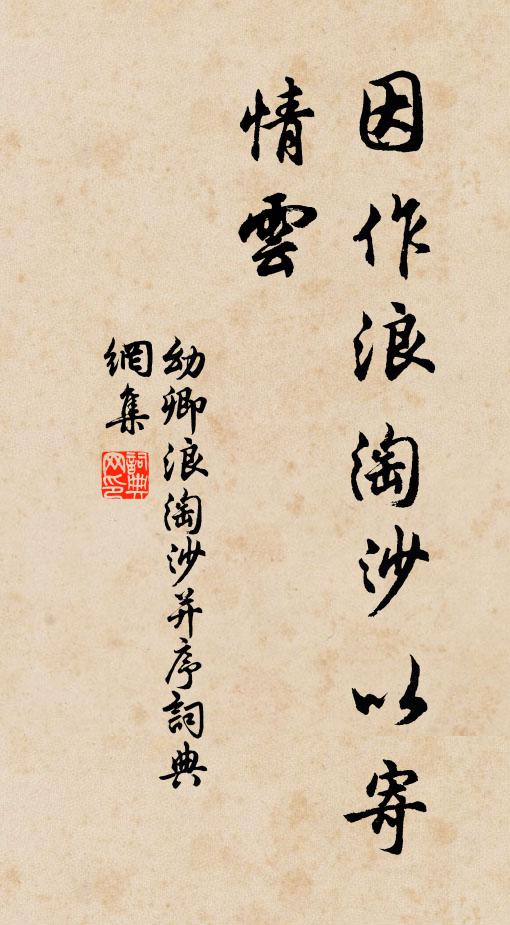 因作浪淘沙以寄
情雲
幼卿浪淘沙并序詞典
網集
詞典網印